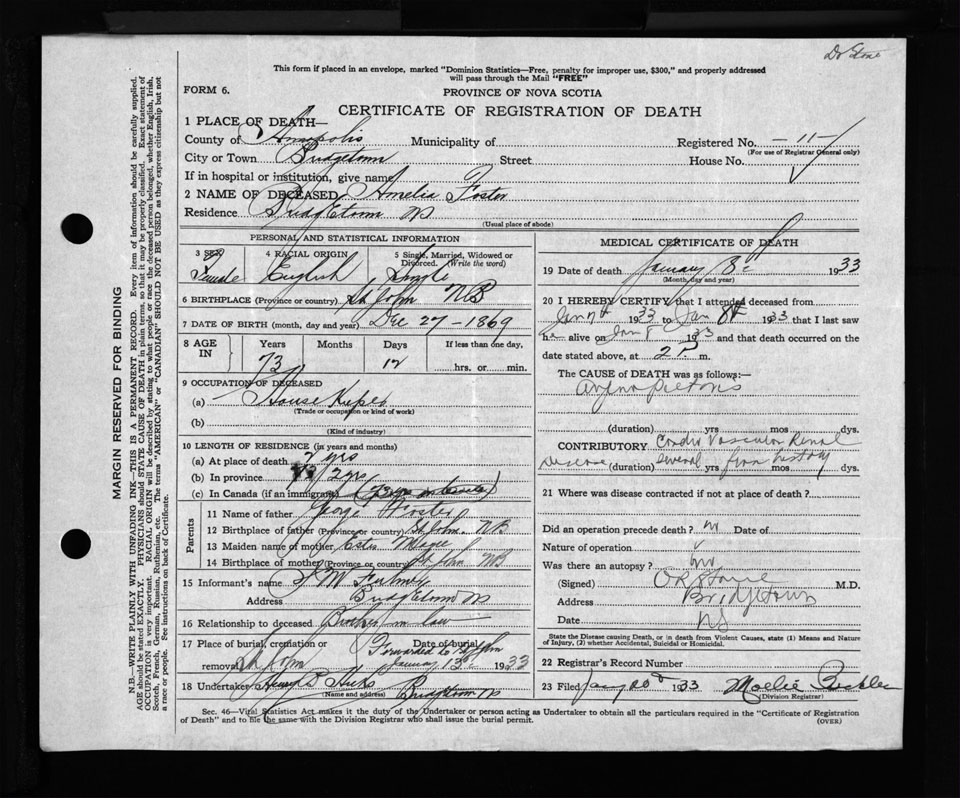 Dr Stone
This form if placed in an envelope, marked "Dominion Statistics—Free, penalty for improper use, $300," and properly addressed
will pass through the Mail "FREE"
FORM 6.
PROVINCE OF NOVA SCOTIA
CERTIFICATE OF REGISTRATION OF DEATH
1 PLACE OF DEATH—
County of Annapolis Municipality of Registered No. —11—
(For use of Registrar General only)
City or Town Bridgetown Street House No.
If in hospital or institution, give name
2 NAME OF DECEASED Amelia Foster
Residence Bridgetown NS
(Usual place of abode)
PERSONAL AND STATISTICAL INFORMATION
3 SEX 4 RACIAL ORIGIN 5 Single, Married, Widowed or Divorced. (Write the word)
Female English Single
6 BIRTHPLACE (Province or country) St John NB
7 DATE OF BIRTH (month, day and year) Dec 27 — 1869
8 AGE IN Years Months Days If less than one day,
73 12 hrs. or min.
9 OCCUPATION OF DECEASED
(a) House Keeper
(Trade or occupation or kind of work)
(b)
(Kind of industry)
10 LENGTH OF RESIDENCE (in years and months)
(a) At place of death 2 yrs
(b) In province 2 yrs
(c) In Canada (if an immigrant)
Parents
11 Name of father George Foster
12 Birthplace of father (Province or country) St John NB
13 Maiden name of mother Magee
14 Birthplace of mother (Province or country) St John NB
15 Informant's name
Address Bridgetown NS
16 Relationship to deceased Brother in law
17 Place of burial, cremation or removal St John Date of burial
Forwarded to St John
January 13th 1933
18 Undertaker Hicks
(Name and address) Bridgetown NS
MEDICAL CERTIFICATE OF DEATH
19 Date of death January 8th 1933
(Month, day and year)
20 I HEREBY CERTIFY that I attended deceased from
Jan 7th 1933 to Jan 8th 1933 that I last saw
h alive on Jan 8 1933 and that death occurred on the
date stated above, at 2 P m.
The CAUSE of DEATH was as follows:
Angina Pectoris
(duration) yrs mos dys.
CONTRIBUTORY Cardio Vascular Renal
Disease (duration) several yrs from history mos dys.
21 Where was disease contracted if not at place of death?
Did an operation precede death? no Date of
Nature of operation
Was there an autopsy? no
(Signed) Stone M.D.
Address Bridgetown
Date NS
State the Disease causing Death, or in death from Violent Causes, state (1) Means and Nature
of Injury, (2) whether Accidental, Suicidal or Homicidal.
22 Registrar's Record Number
23 Filed Jany 1933
(Division Registrar)
Sec. 46—Vital Statistics Act makes it the duty of the Undertaker or person acting as Undertaker to obtain all the particulars required in the "Certificate of Registration
of Death" and to file the same with the Division Registrar who shall issue the burial permit.
(OVER)
MARGIN RESERVED FOR BINDING
N.B.—WRITE PLAINLY WITH UNFADING INK—THIS IS A PERMANENT RECORD. Every item of information should be carefully supplied.
AGE should be stated EXACTLY. PHYSICIANS should STATE CAUSE OF DEATH in plain terms, so that it may be properly classified. Exact statement of
OCCUPATION is very important. RACIAL ORIGIN will be described by stating to what people or race the deceased person belonged, whether English, Irish,
Scotch, French, German, Russian, Ruthenian, etc. The terms "AMERICAN" or "CANADIAN" SHOULD NOT BE USED as they express citizenship but not
a race or people. See instructions on back of Certificate.